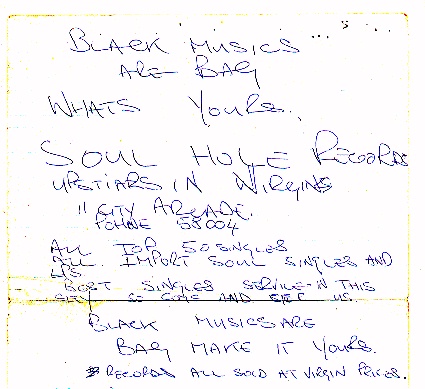 BLACK MUSICS
ARE BAG
WHATS YOURS.
SOUL HOLE RECORDS
UPSTIARS IN VIRGINS
11 CITY ARCADE.
POHNE 55004
ALL TOP 50 SINGLES
ALL IMPORT SOUL SINGLES AND
US.
BEST SINGLES SERVICE IN THIS
CITY SO COME AND US.
BLACK MUSICS ARE
BAG MAKE IT YOURS.
RECORDS ALL SOLD AT VIRGIN PRICES.